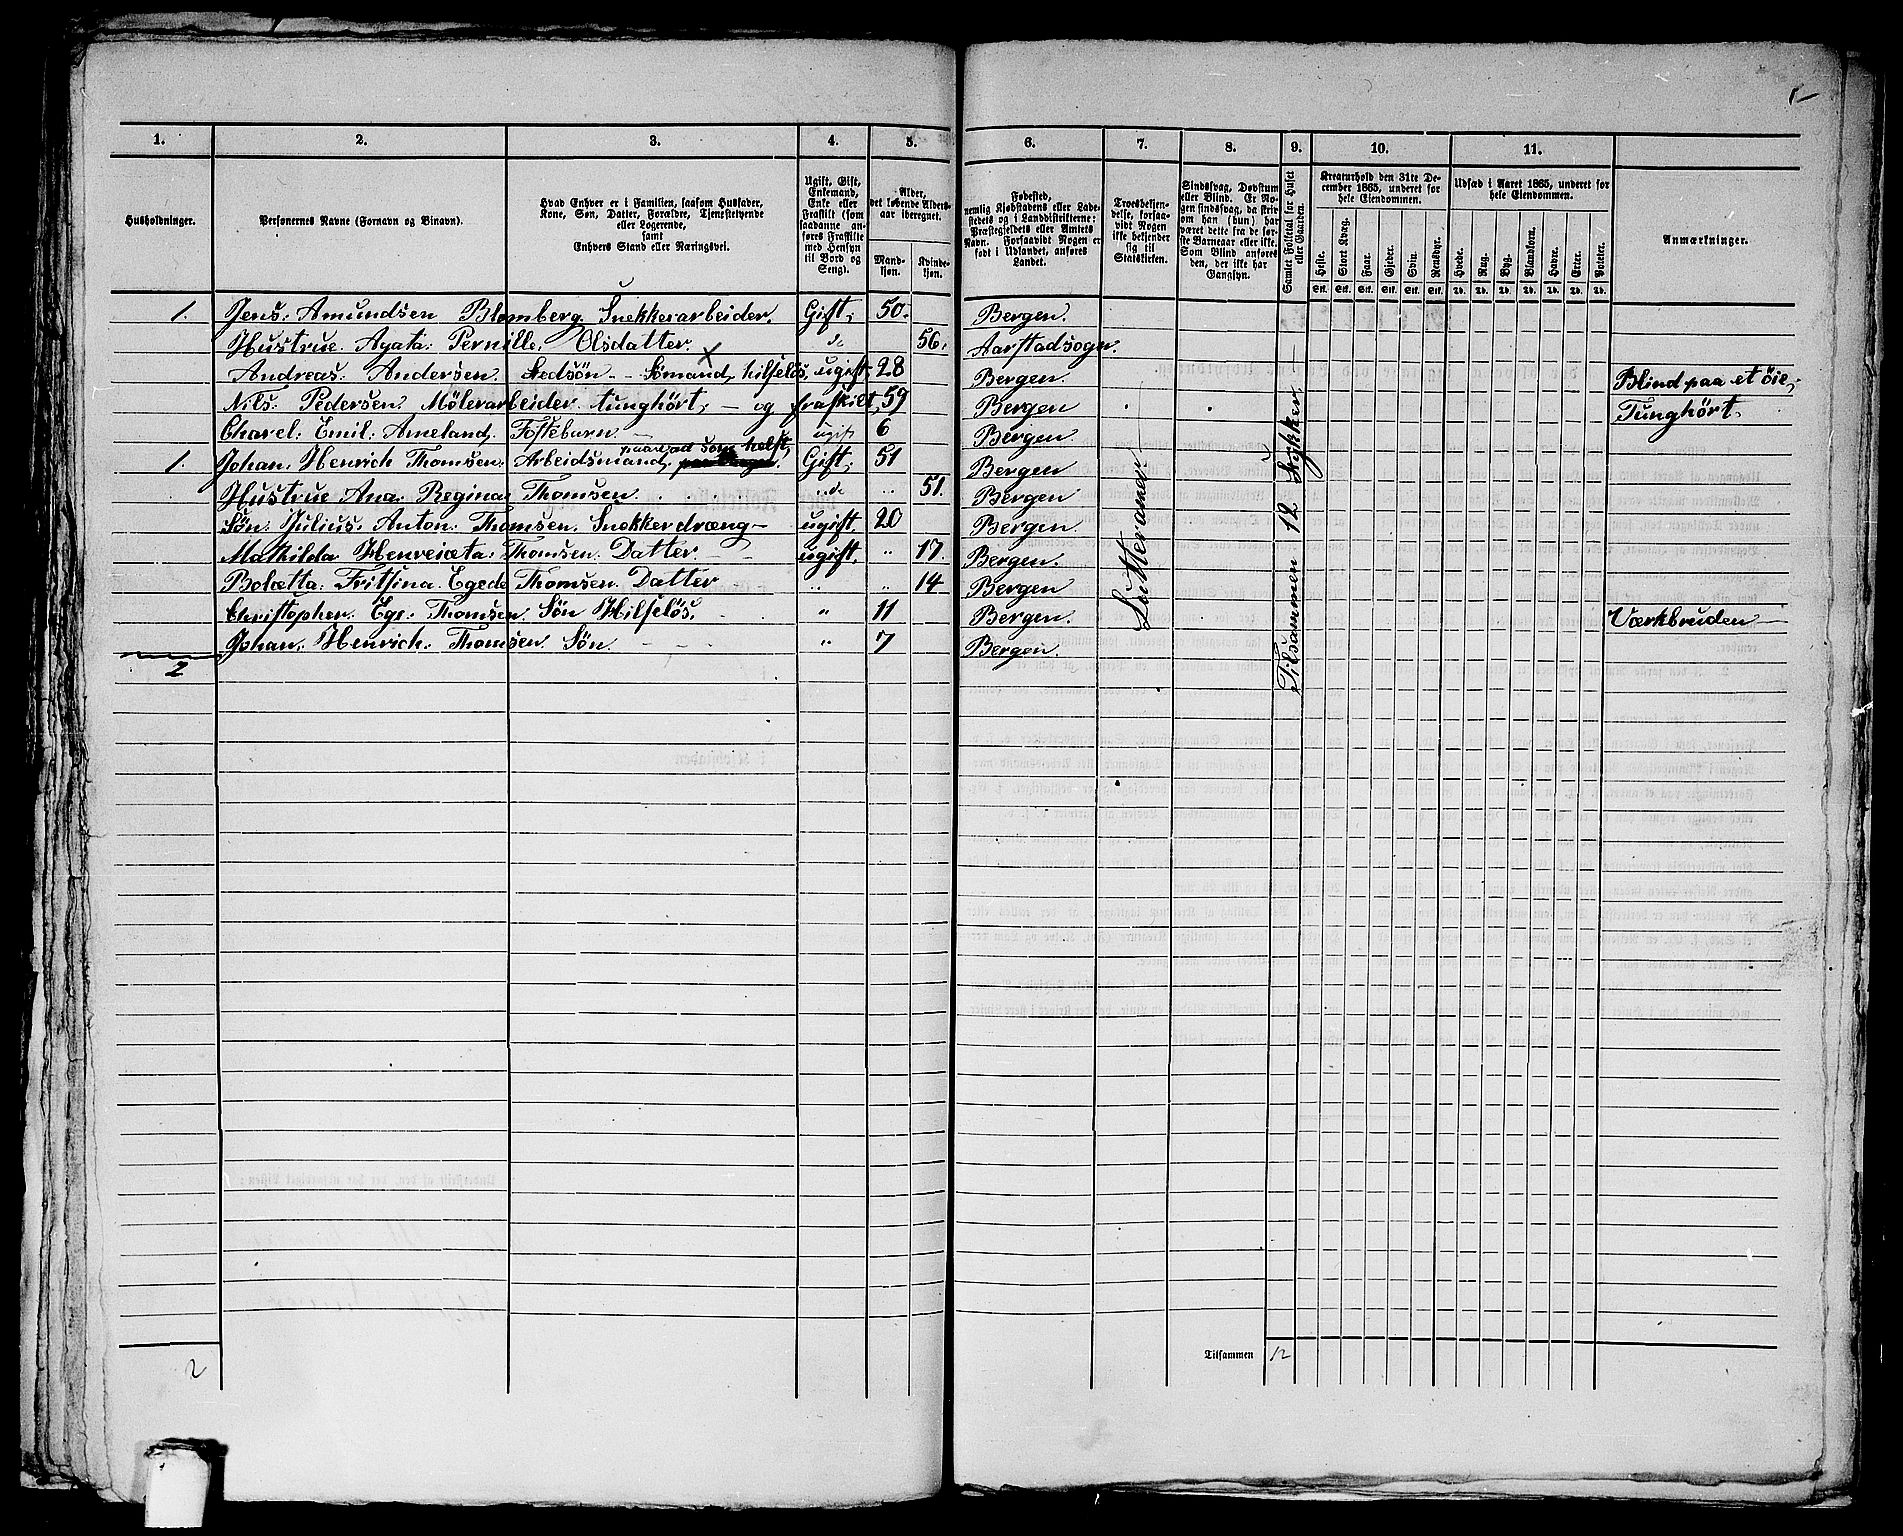 1. 2. 3. 4. 5. 6. 7. 8. 9. 10. 11.
Husholdninger.
Personernes Navne (Fornavn og Binavn).
Hvad Enhver er i Familien, saasom Husfader,
Kone, Søn, Datter, Forældre, Tjenestetyende
eller Logerende,
samt
Enhvers Stand eller Næringsvei.
Ugift, Gift,
Enkemand,
Enke eller
Fraskilt (som
saadanne an-
føres Fraskilte
med Hensyn
til Bord og
Seng).
Alder,
det løbende Alders-
aar iberegnet.
Mand-
kjøn.
Kvinde-
kjøn.
Fødested,
nemlig Kjøbstadens eller Lade-
stedets og i Landdistrikterne:
Præstegjeldets eller Amtets
Navn. Forsaavidt Nogen er
født i Udlandet, anføres
Landet.
Troesbekjen-
delse, forsaa-
vidt Nogen
ikke bekjender
sig til
Statskirken.
Sindssvag, Døvstum
eller Blind. Er No-
gen sindssvag, da skri-
ves om han (hun) har
været dette fra de før-
ste Barneaar eller ikke.
Som Blind anføres
den, der ikke har
Gangsyn.
Samlet Folketal for Huset
eller Gaarden.
Kreaturhold den 31te De-
cember 1865, underet for
hele Eiendommen.
Heste. Stort Kvæg. Faar. Gjeder. Svin. Rensdyr.
Stk. Stk. Stk. Stk. Stk. Stk.
Udsæd i Aaret 1865, underet for
hele Eiendommen.
Hvede. Rug. Byg. Blandkorn. Havre. Erter. Poteter.
Td. Td. Td. Td. Td. Td. Td.
Anmærkninger.
1. Jens: Amundsen Blomberg. Snekkerarbeider. Gift, 50. Bergen.
Hustrue. Agata: Pernille. Olsdatter. do 56. Aarstadsogn.
Andreas: Andersen. Stedsøn - Sømand, hilfeløs, ugift, 28 Bergen. Blind paa et öie,
Nils: Pedersen. Mølerarbeider. tunghört, - og fraskilt, 59 Bergen Tunghört.
Charel: Emil: Ameland. Fostebarn. - ugift 6 Bergen
1. Johan. Henrich Thomsen. Arbeidsmand, Gift, 51 Bergen
Hustrue Ana: Regina: Thomsen. do 51. Bergen
Søn: Julius: Anton: Thomsen. Snekkerdræng - ugift, 20 Bergen
Mathilda Henreieta: Thomsen. Datter - ugift, 17. Bergen.
Bolætta. Frittina. Egede Thomsen. Datter 14 Bergen
Christopher. Ege: Thomsen. Søn Hilfeløs. 11 Bergen. Værkbruden
Johan: Henrich: Thomsen. Søn. 7 Bergen.
2
Lutteraner
Tilsammen 12 Stykker
Tilsammen 12
2